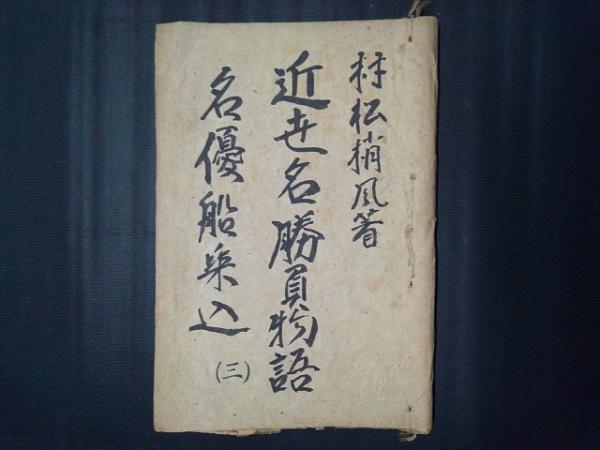 村松梢風著
近世名勝負物語
名優船乗込
(三)